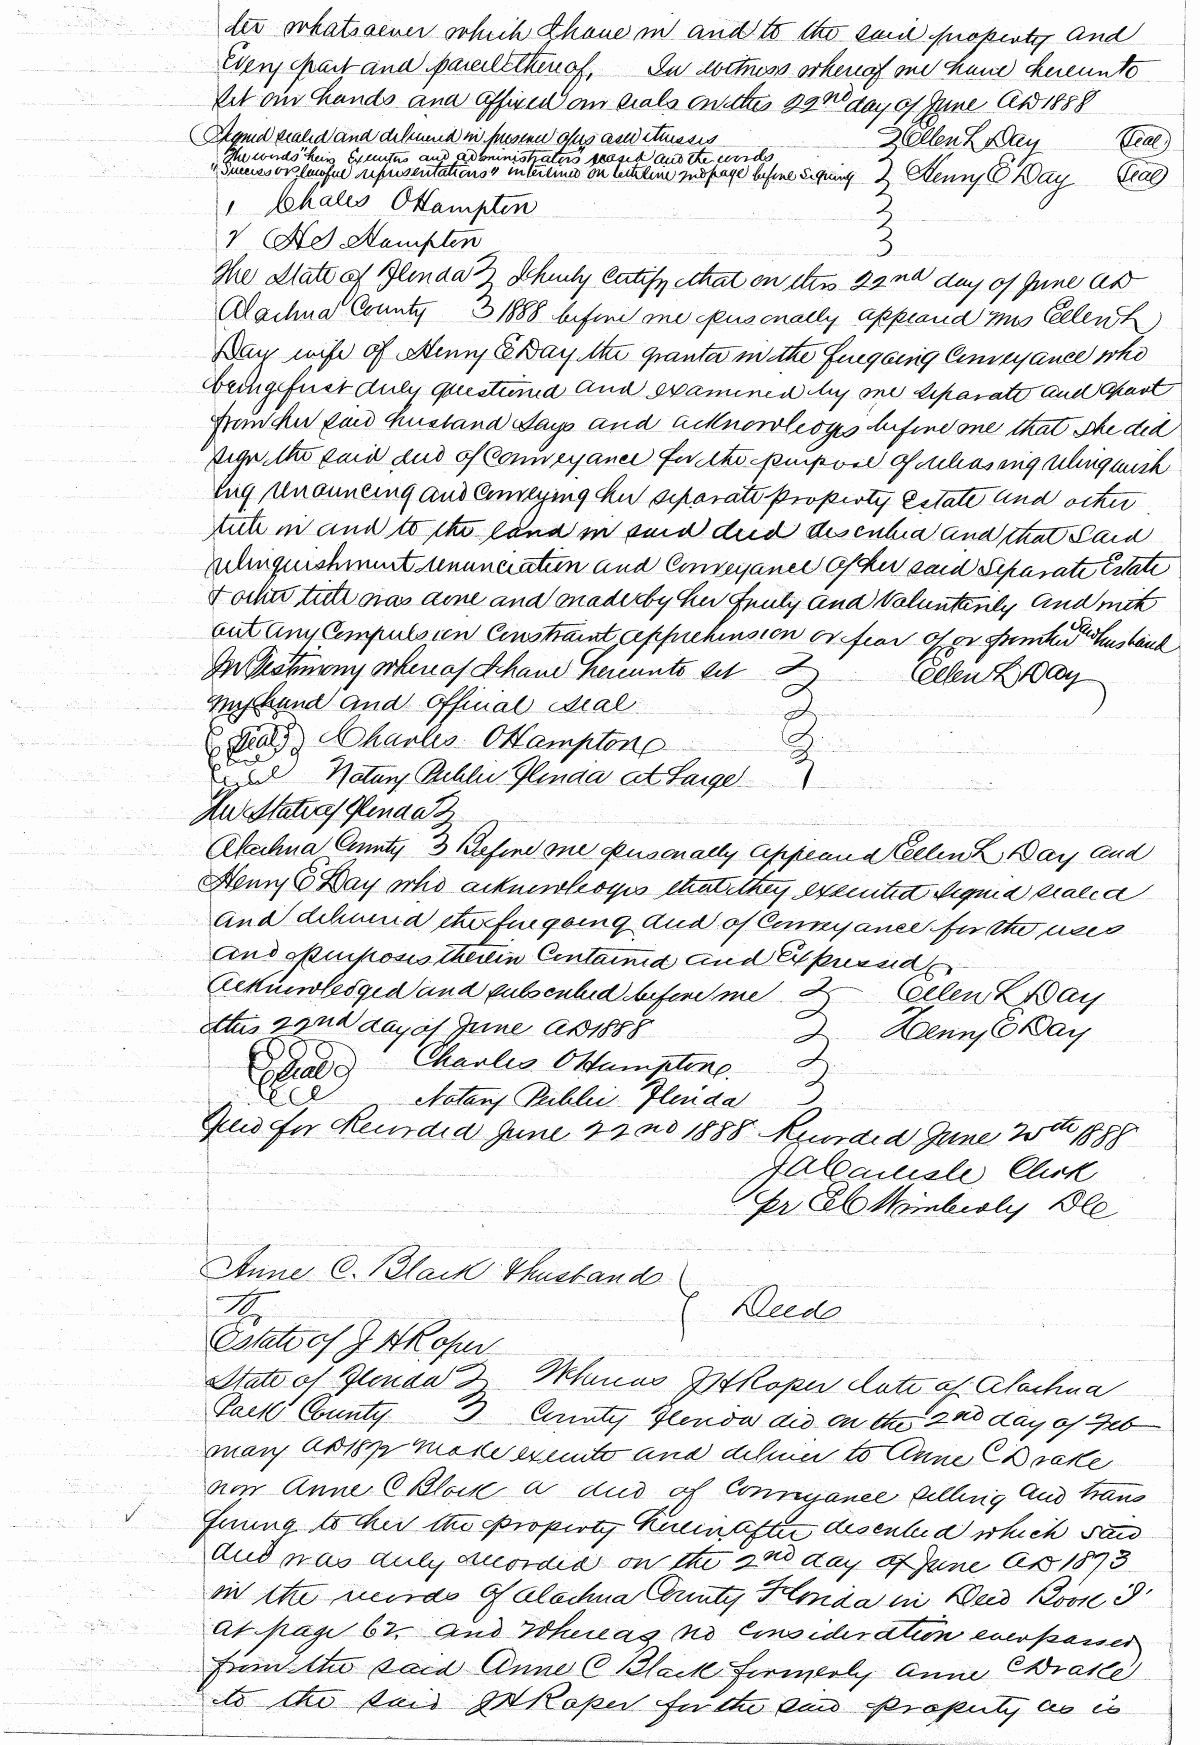 ter whatsoever which I have in and to the said property and
Every part and parcell thereof. In witness whereof we have hereunto
set our hands and affixed our seals on this 22nd day of June AD 1888
Signed sealed and delivered in presence of us as witnesses } Ellen L Day (Seal)
"The words "heirs Executors and administrators" erased and the words
"Successor lawful representations" interlined on line 2nd page before signing } Henry E Day (Seal)
1 Chales O Hampton
2 H S Hampton
The State of Florida } I hereby certify that on this 22nd day of June AD
Alachua County } 1888 before me personally appeared Mrs Ellen L
Day wife of Henry E Day the grantor in the foregoing Conveyance who
being first duly questioned and examined by me separate and apart
from her said husband says and acknowledges before me that she did
sign the said deed of conveyance for the purpose of releasing relinquish
ing renouncing and Conveying her separate property Estate and other
title in and to the land in said deed described and that Said
relinquishment renunciation and Conveyance of her said Separate Estate
& other title was done and made by her freely and Voluntarily and with
out any Compulsion Constraint apprehension or fear of or from her said husband
In Testimony whereof I have hereunto set } Ellen L Day
my hand and official seal
(Seal) Charles O Hampton
Notary Public Florida at Large
The State of Florida }
Alachua County } Before me personally appeared Ellen L Day and
Henry E Day who acknowledges that they executed signed sealed
and delivered the foregoing deed of Conveyance for the uses
and purposes therein Contained and Expressed
Acknowledged and subscribed before me } Ellen L Day
this 22nd day of June AD 1888 } Henry E Day
(Seal) Charles O Hampton
Notary Public Florida
Filed for Recorded June 22nd 1888 Recorded June 25th 1888
J A Carlisle Clerk
pr E C Wimberly DC
Anne C. Black & husband
To } Deed
Estate of J H Roper
State of Florida } Whereas J H Roper late of Alachua
County } County Florida did on the 2nd day of Feb
ruary AD 1872 make execute and deliver to Anne C Drake
now Anne C Black a deed of conveyance selling and trans
fering to her the property herein after described which said
deed was duly recorded on the 2nd day of June AD 1873
in the records of Alachua County Florida in Deed Book I
at page 62. and whereas no consideration ever passed
from the said Anne C Black formerly Anne C Drake
to the said J H Roper for the said property as is